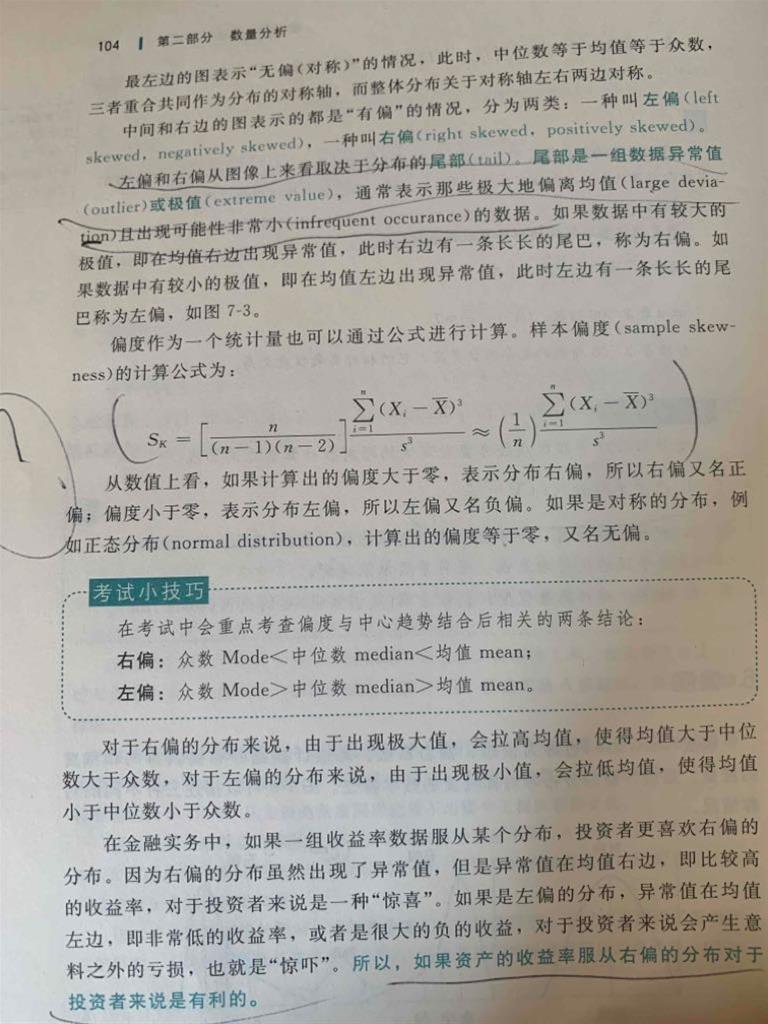 104 第二部分 数量分析
最左边的图表示“无偏(对称)”的情况，此时，中位数等于均值等于众数，
三者重合共同作为分布的对称轴，而整体分布关于对称轴左右两边对称。
中间和右边的图表示的都是“有偏”的情况，分为两类：一种叫左偏(left
skewed, negatively skewed)，一种叫右偏(right skewed, positively skewed)。
左偏和右偏从图像上来看取决于分布的尾部(tail)。尾部是一组数据异常值
(outlier)或极值(extreme value)，通常表示那些极大地偏离均值(large devia-
tion)且出现可能性非常小(infrequent occurance)的数据。如果数据中有较大的
极值，即在均值右边出现异常值，此时右边有一条长长的尾巴，称为右偏。如
果数据中有较小的极值，即在均值左边出现异常值，此时左边有一条长长的尾
巴称为左偏，如图 7-3。
偏度作为一个统计量也可以通过公式进行计算。样本偏度(sample skew-
ness)的计算公式为：
S_K = [n/((n-1)(n-2))] ∑_{i=1}^{n}(X_i - X̄)³/s³ ≈ (1/n) ∑_{i=1}^{n}(X_i - X̄)³/s³
从数值上看，如果计算出的偏度大于零，表示分布右偏，所以右偏又名正
偏；偏度小于零，表示分布左偏，所以左偏又名负偏。如果是对称的分布，例
如正态分布(normal distribution)，计算出的偏度等于零，又名无偏。
考试小技巧
在考试中会重点考查偏度与中心趋势结合后相关的两条结论：
右偏：众数 Mode<中位数 median<均值 mean；
左偏：众数 Mode>中位数 median>均值 mean。
对于右偏的分布来说，由于出现极大值，会拉高均值，使得均值大于中位
数大于众数，对于左偏的分布来说，由于出现极小值，会拉低均值，使得均值
小于中位数小于众数。
在金融实务中，如果一组收益率数据服从某个分布，投资者更喜欢右偏的
分布。因为右偏的分布虽然出现了异常值，但是异常值在均值右边，即比较高
的收益率，对于投资者来说是一种“惊喜”。如果是左偏的分布，异常值在均值
左边，即非常低的收益率，或者是很大的负的收益，对于投资者来说会产生意
料之外的亏损，也就是“惊吓”。所以，如果资产的收益率服从右偏的分布对于
投资者来说是有利的。